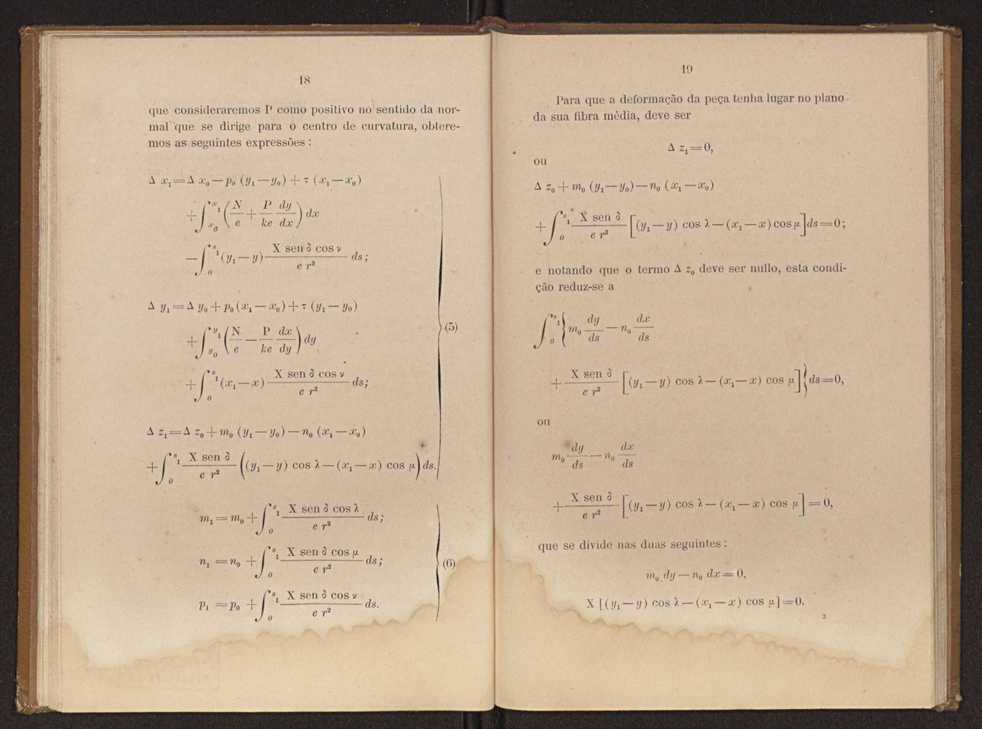 18
que consideraremos P como positivo no sentido da nor-
mal que se dirige para o centro de curvatura, obtere-
mos as seguintes expressões :
Δ x₁ = Δ x₀ — p₀ (y₁ — y₀) + τ (x₁ — x₀)
+ ∫_{x₀}^{x₁} ( N/e + P/ke dy/dx ) dx
— ∫_0^{s₁} (y₁ — y) X sen δ cos ν / e r² ds;
Δ y₁ = Δ y₀ + p₀ (x₁ — x₀) + τ (y₁ — y₀)
+ ∫_{s₀}^{y₁} ( N/e — P/ke dx/dy ) dy
+ ∫_0^{s₁} (x₁ — x) X sen δ cos ν / e r² ds;
(5)
Δ z₁ = Δ z₀ + m₀ (y₁ — y₀) — n₀ (x₁ — x₀)
+ ∫_0^{s₁} X sen δ / e r² ( (y₁ — y) cos λ — (x₁ — x) cos μ ) ds.
m₁ = m₀ + ∫_0^{s₁} X sen δ cos λ / e r² ds;
n₁ = n₀ + ∫_0^{s₁} X sen δ cos μ / e r² ds;
(6)
p₁ = p₀ + ∫_0^{s₁} X sen δ cos ν / e r² ds.
19
Para que a deformação da peça tenha lugar no plano
da sua fibra média, deve ser
Δ z₁ = 0,
ou
Δ z₀ + m₀ (y₁ — y₀) — n₀ (x₁ — x₀)
+ ∫_0^{s₁} X sen δ / e r² [ (y₁ — y) cos λ — (x₁ — x) cos μ ] ds = 0;
e notando que o termo Δ z₀ deve ser nullo, esta condi-
ção reduz-se a
∫_0^{s₁} { m₀ dy/ds — n₀ dx/ds
+ X sen δ / e r² [ (y₁ — y) cos λ — (x₁ — x) cos μ ] } ds = 0,
ou
m₀ dy/ds — n₀ dx/ds
+ X sen δ / e r² [ (y₁ — y) cos λ — (x₁ — x) cos μ ] = 0,
que se divide nas duas seguintes :
m₀ dy — n₀ dx = 0,
X [(y₁ — y) cos λ — (x₁ — x) cos μ] = 0.